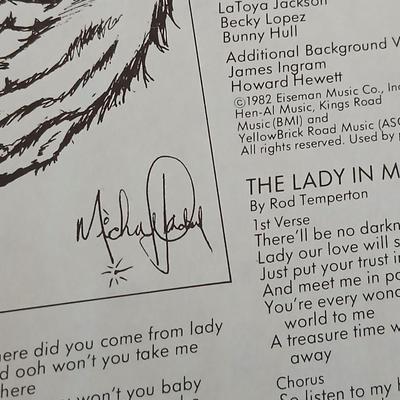 LaToya Jackson
Becky Lopez
Bunny Hull
Additional Background V
James Ingram
Howard Hewett
©1982 Eiseman Music Co., Inc
Hen-Al Music, Kings Road
Music (BMI) and
YellowBrick Road Music (ASC
All rights reserved. Used by p
THE LADY IN M
By Rod Temperton
1st Verse
There'll be no darkn
Lady our love will s
Just put your trust in
And meet me in pa
You're every wond
world to me
A treasure time w
away
Chorus
So listen to my h
Michael Jackson
here did you come from lady
d ooh won't you take me
here
won't you baby